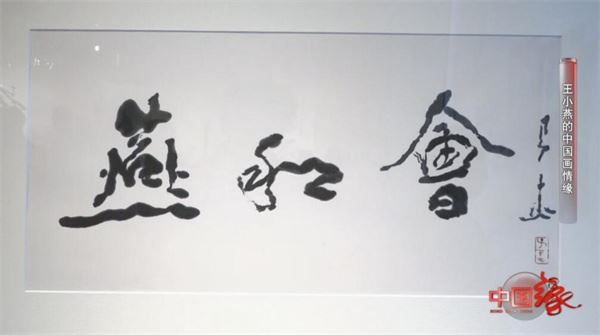 燕和會
王小燕的中国画情缘
中国缘